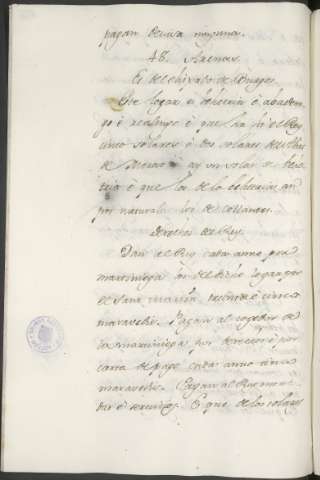 pagan devisa ninguna.
48. Arenas.
Es del obispado de Burgos.
Este logar es behetria è abaden-
go è realengo è que ha hi el Rey
cinco solares è dos solares
de è ay un solar de behe-
tria è que los de la behetria an
por natural de
Derechos del Rey.
Dan al Rey cada anno por
martiniega los del dicho logar por
de Sant Martin treinta è cinco
maravedis. Pagan al cogedor de
la martiniega por tercero è por
carta de pago cada anno cinco
maravedis. Pagan al Rey mone-
das è servicios. È que de los solares